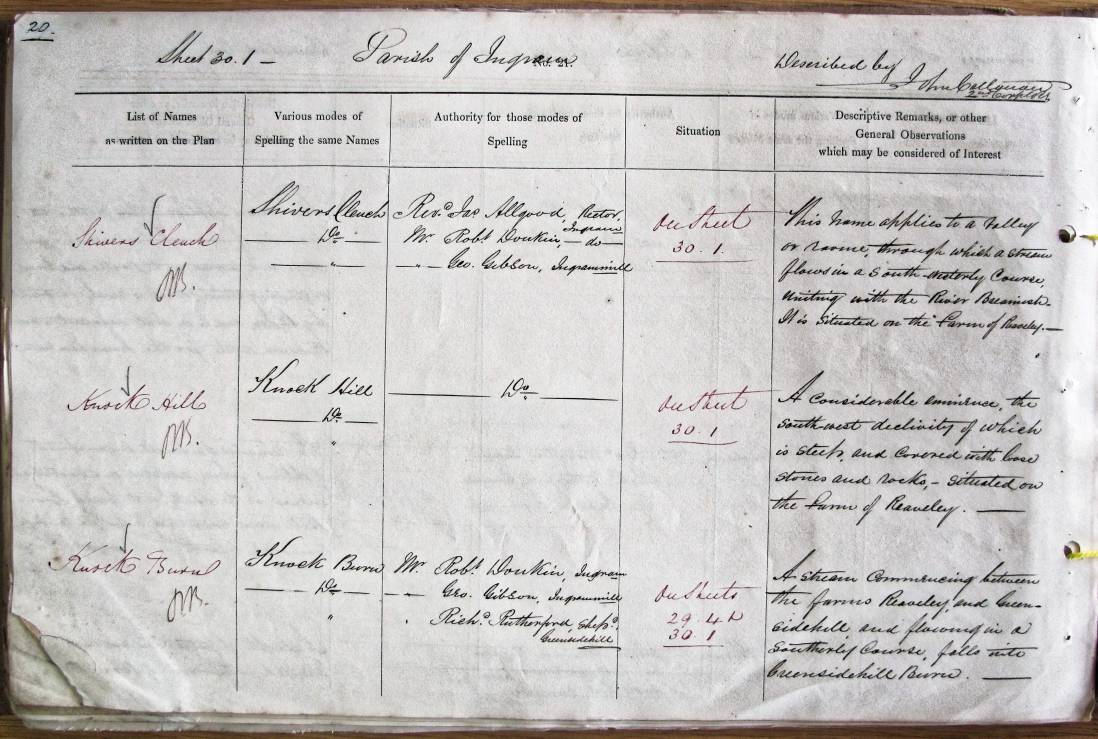 20.
Sheet 30.1 — Parish of Ingram Described by
No. 21.
John
2nd Corpl RE
List of Names
as written on the Plan
Various modes of
Spelling the same Names
Authority for those modes of
Spelling
Situation
Descriptive Remarks, or other
General Observations
which may be considered of Interest
Shivers Cleuch
Shivers Cleuch
Do
"
Revd Jas Allgood, Rector,
Ingram
Mr Robt Donkin, — do —
" — Geo. Gibson, Ingrammill
On Sheet
30.1
This name applies to a Valley
or ravine, through which a stream
flows in a South-westerly Course,
uniting with the River Breamish.
It is situated on the Farm of Reaveley. —
Knock Hill
Knock Hill
Do
"
Do
On Sheet
30.1
A considerable eminence, the
south-west declivity of which
is steep, and covered with loose
stones and rocks, — situated on
the Farm of Reaveley. —
Knock Burn
Knock Burn
Do
"
Mr Robt Donkin, Ingram
" — Geo. Gibson, Ingrammill
" Richd Rutherford, Shepd,
Greensidehill
On Sheets
29.4 &
30.1
A stream commencing between
the farms Reaveley, and Green-
sidehill and flowing in a
Southerly Course, falls into
Greensidehill Burn. —